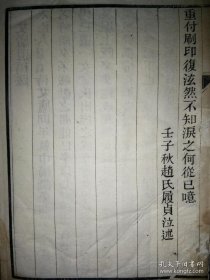 重付刷印復泫然不知淚之何從已噫
壬子秋趙氏履貞泣述